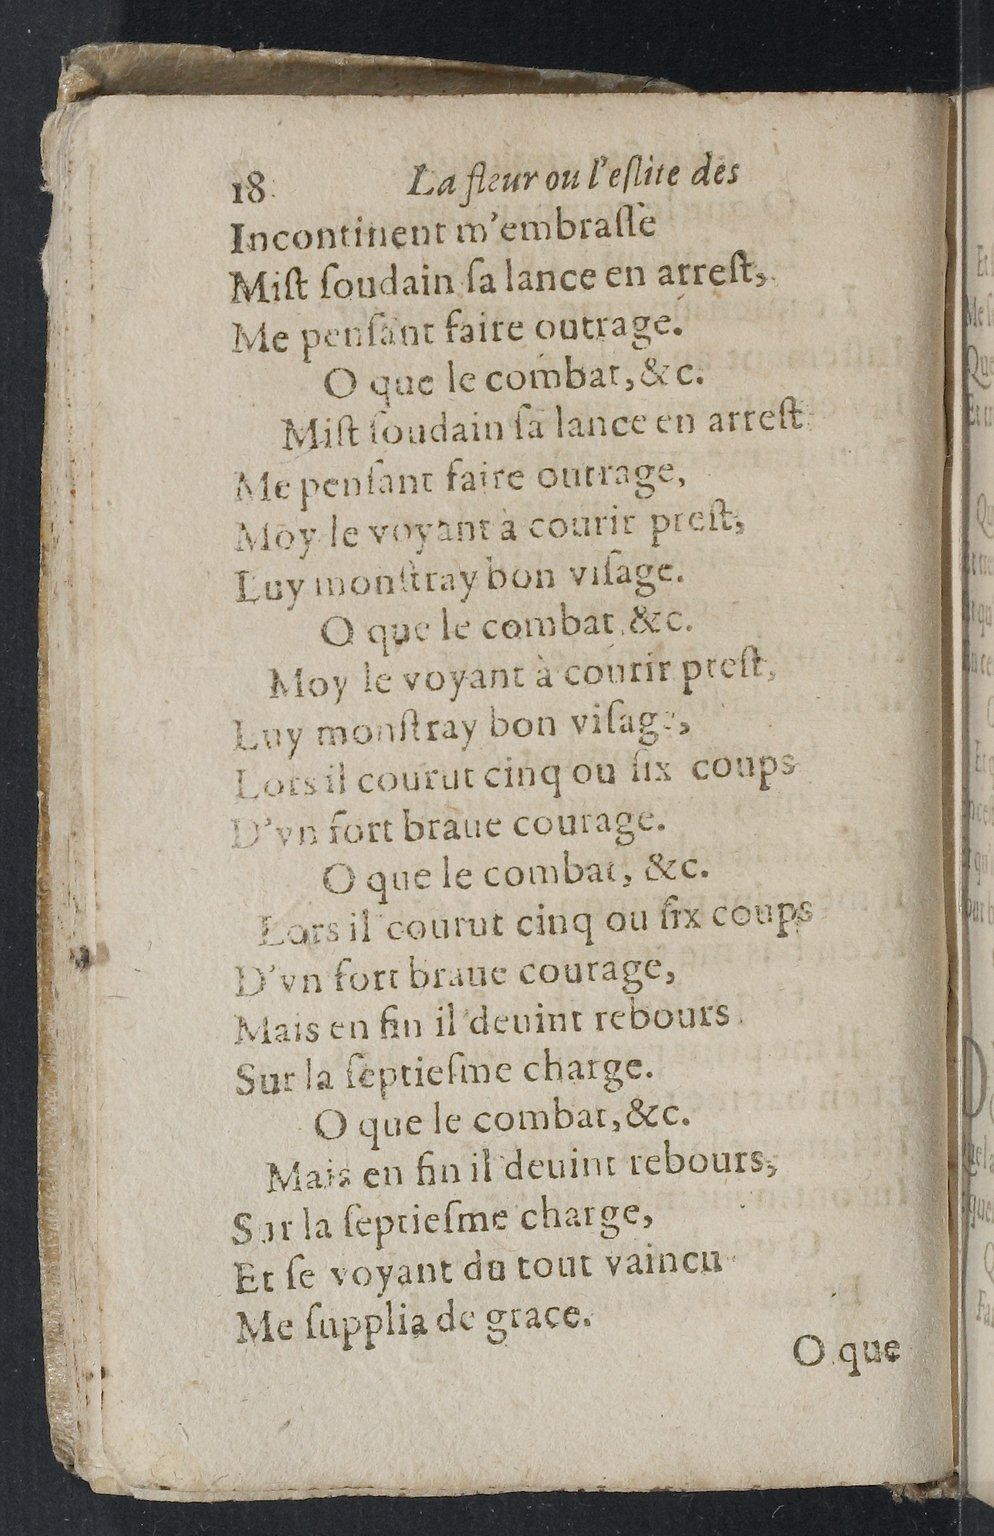 18 La fleur ou l'eſlite des
Incontinent m'embraſſe
Miſt ſoudain ſa lance en arreſt,
Me penſant faire outrage.
O que le combat, &c.
Miſt ſoudain ſa lance en arreſt
Me penſant faire outrage,
Moy le voyant à courir preſt,
Luy monſtray bon viſage.
O que le combat, &c.
Moy le voyant à courir preſt,
Luy monſtray bon viſage,
Lors il courut cinq ou ſix coups
D'vn fort braue courage.
O que le combat, &c.
Lors il courut cinq ou ſix coups
D'vn fort braue courage,
Mais en fin il deuint rebours
Sur la ſeptieſme charge.
O que le combat, &c.
Mais en fin il deuint rebours,
Sur la ſeptieſme charge,
Et ſe voyant du tout vaincu
Me ſupplia de grace.
O que